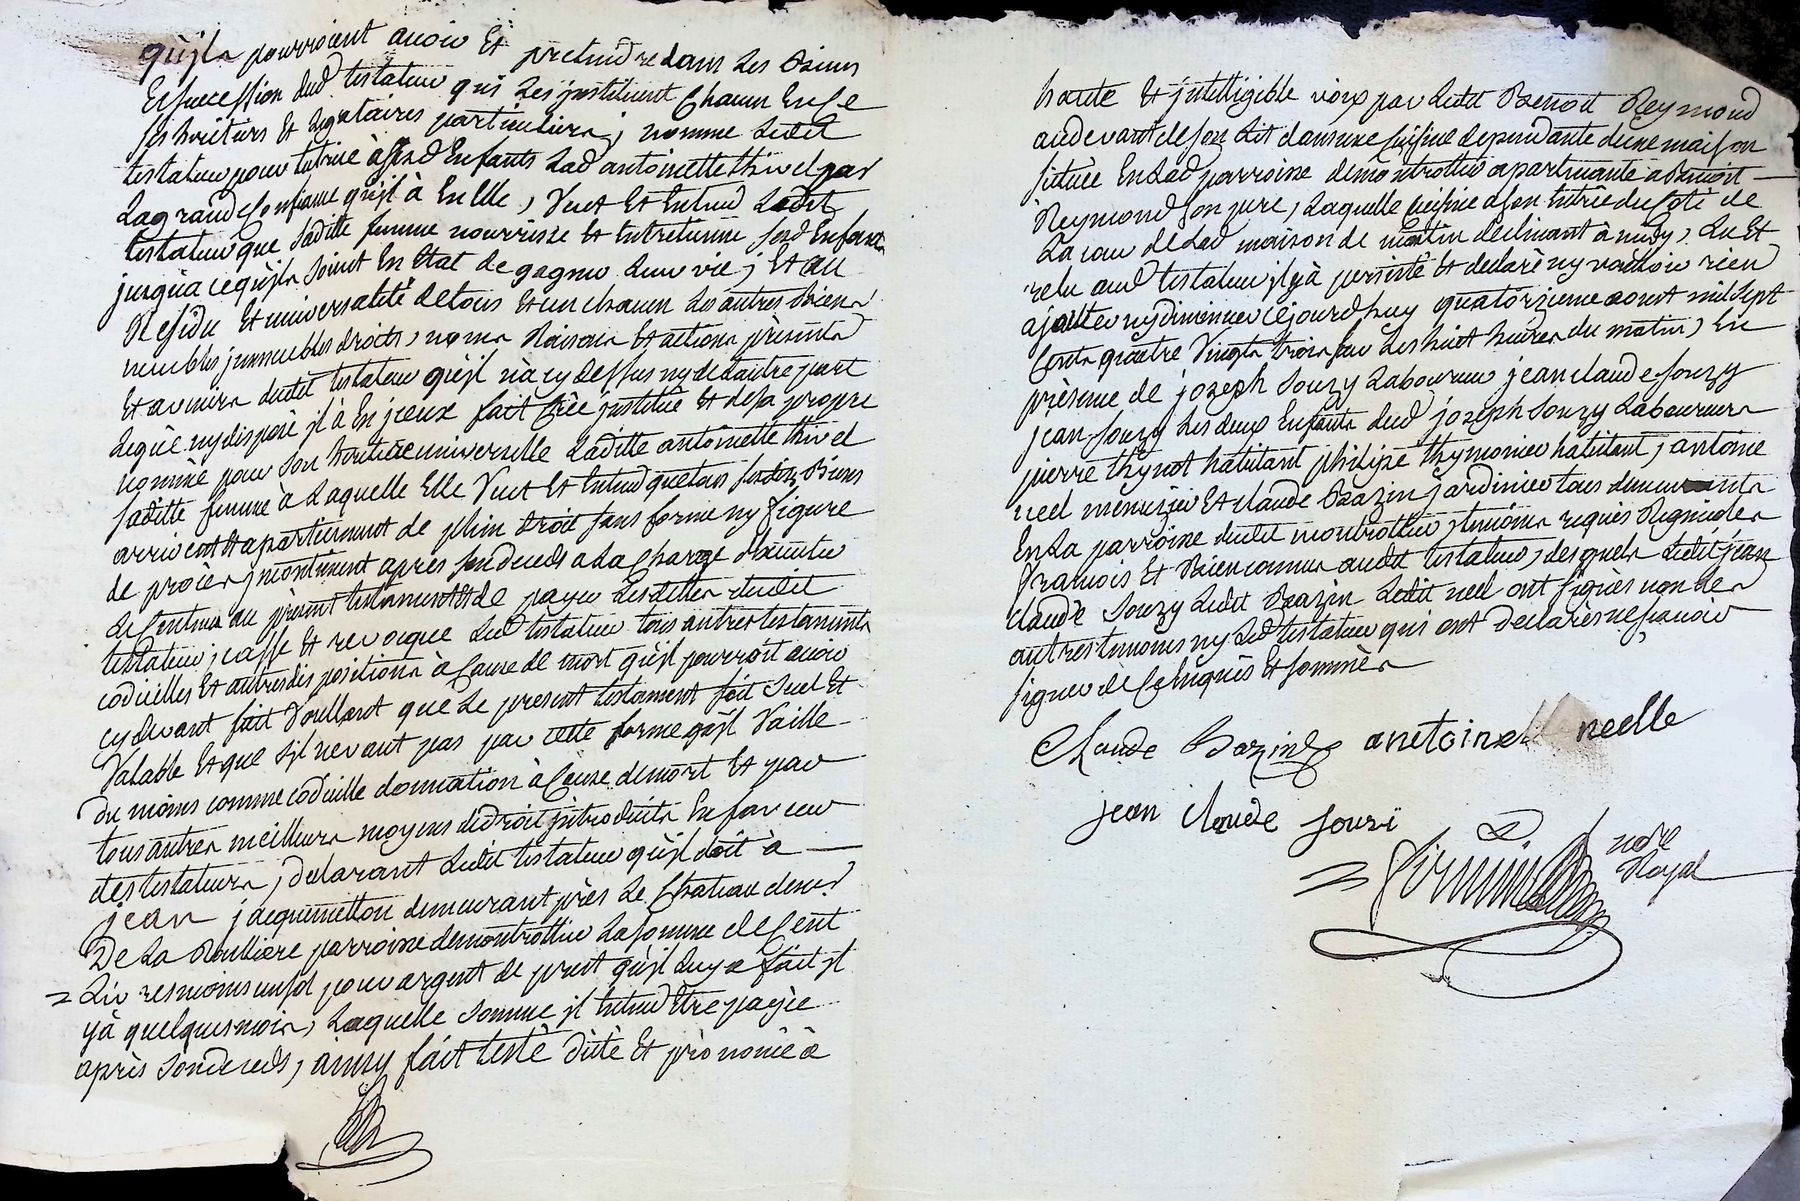 qu'jls pourroient avoir Et pretendre dans Les Biens
Et succession dud testateur qui Les jnstituent Chacun En ce
ses heritiers Et Legataires particuliers ; nomme Ledit
testateur pour tutrice à sesd Enfants Lad antoinette thivel par
La grande Confiance qu'jl à En Elle, Veut Et Entend Ledit
testateur que Saditte femme nourrisse Et Entretienne sesd Enfants
jusqu'a ce qu'jls soient En Etat de gagner Leur vie ; Et au
Residu Et universalité de tous Et un chacun Les autres Biens
meubles jmmeubles droits, noms Raisons Et actions présents
Et avenirs dudit testateur qu'jl n'a cy dessus ny d'autre part
Legué ny disposé jl à En jceux fait Créé jnstitué Et de sa propre
nommé pour son heritiere universelle Laditte antoinette thivel
saditte femme à Laquelle Elle Veut Et Entend que tous sesdits Biens
arrivent Et apartiennent de plein droit sans forme ny figure
de procès jncontinent après son deceds a La Charge d'acuitter
Le Contenu au présent testament Et de payer Les dettes dudit
testateur ; casse Et revocque Led testateur tous autres testaments
codicilles Et autres dispositions à Cause de mort qu'jl pourroit avoir
cy devant fait Voullant que Le present testament soit seul Et
Valable Et que s'jl ne vaut pas par cette forme qu'jl Vaille
du moins comme codicille donnation à Cause de mort Et par
tous autres meilleurs moyens de droit jntroduits En faveur
des testateurs, declarant Ledit testateur qu'jl doit à
jean jacquemetton demeurant près Le Chateau
De La Roulliere parroisse de montrottier La somme de Cent
Livres moins un sol pour argent de prest qu'jl Luy a fait jl
y à quelques mois, Laquelle somme jl Entend Etre payée
après son deceds, ainsy fait testé dicté Et prononcé a
haute Et jntelligible voix par Ledit Benoit Reymond
au devant de son Lit dans une Cuisine dependante d'une maison
située En Lad parroisse de montrottier apartenante a Benoit
Reymond son pere, Laquelle Cuisine a son Entrée du Coté de
La cour de Lad maison de matin declinant à midy, Lu Et
relu aud testateur jl y à persisté Et declaré ny vouloir rien
ajoutter ny diminuer Cejourd'huy quatorzieme aoust mil sept
Cents quatre Vingts trois sur Les huit heures du matin, En
présence de jozeph Souzy Laboureur jean claude souzy
jean souzy Les deux Enfants dud jozeph Souzy Laboureurs
pierre thynot habitant philipe thymonier habitant, antoine
neel menuizier Et claude Bazin jardinier tous demeurants
En La parroisse dudit montrottier, temoins requis Regnicoles
francois Et Bien connus audit testateur, desquels Ledit jean
Claude Souzy Ledit Bazin Ledit neel ont signés non Les
autres temoins ny Led testateur qui ont declarès ne scavoir
signer de Ce Enquis Et sommès
Claude Bazin antoine neelle
jean claude souzi
nore
Royal